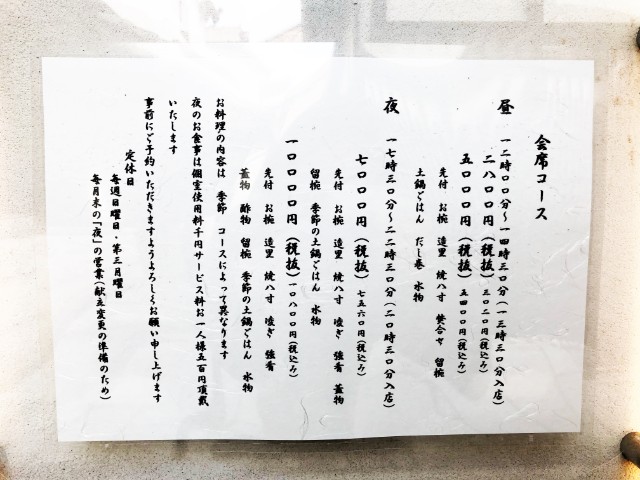 会席コース
昼　一二時〇〇分～一四時三〇分（一三時三〇分入店）
二八〇〇円（税抜）三〇二〇円（税込み）
五〇〇〇円（税抜）五四〇〇円（税込み）
先付　お椀　造里　焼八寸　焚合せ　留椀
土鍋ごはん　だし巻　水物
夜　一七時三〇分～二二時三〇分（二〇時三〇分入店）
七〇〇〇円（税抜）七五六〇円（税込み）
先付　お椀　造里　焼八寸　凌ぎ　強肴　蓋物
留椀　季節の土鍋ごはん　水物
一〇〇〇〇円（税抜）一〇八〇〇円（税込み）
先付　お椀　造里　焼八寸　凌ぎ　強肴
蓋物　酢物　留椀　季節の土鍋ごはん　水物
お料理の内容は　季節　コースによって異なります
夜のお食事は個室使用料千円サービス料お一人様五百円頂戴
いたします
事前にご予約いただきますようよろしくお願い申し上げます
定休日
毎週日曜日・第三月曜日
毎月末の「夜」の営業（献立変更の準備のため）